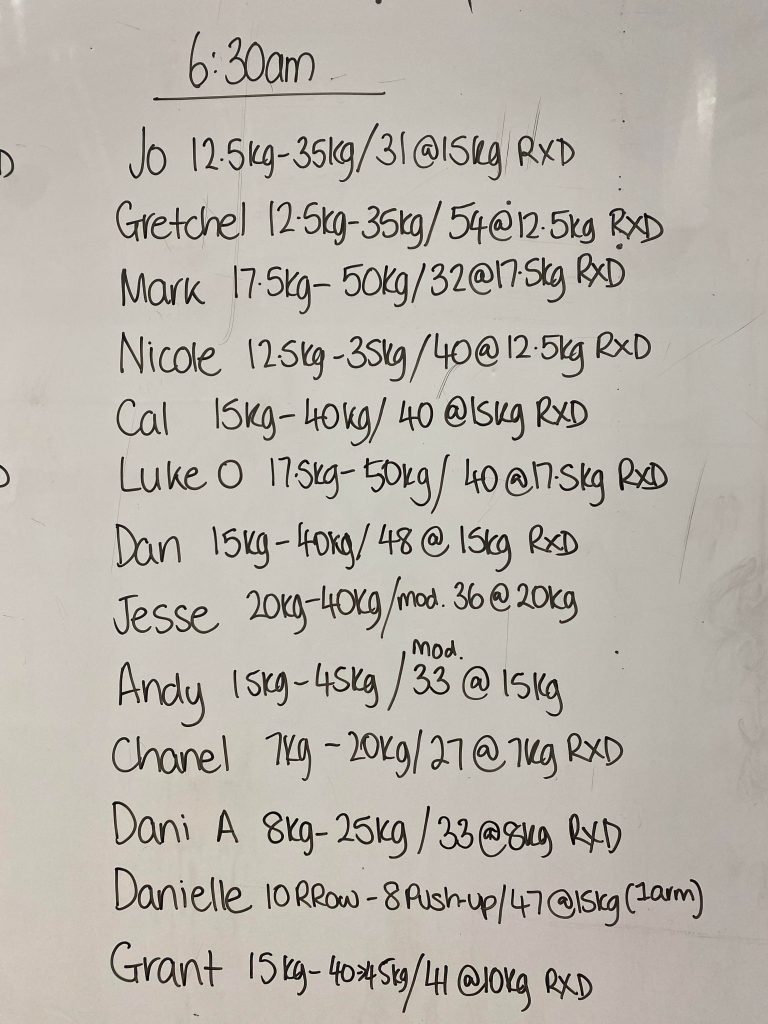 6:30am
Jo 12.5kg-35kg/31@15kg RXD
Gretchel 12.5kg-35kg/ 54@12.5kg RXD
Mark 17.5kg- 50kg/32@17.5kg RXD
Nicole 12.5kg-35kg/40@12.5kg RXD
Cal 15kg-40kg/ 40 @15kg RXD
Luke O 17.5kg-50kg/ 40@17.5kg RXD
Dan 15kg-40kg/ 48 @ 15kg RXD
Jesse 20kg-40kg/mod. 36@20kg
Andy 15kg-45kg /mod. 33 @ 15kg
Chanel 7kg -20kg/27@7kg RXD
Dani A 8kg-25kg /33@8kg RXD
Danielle 10RRow-8Push-up/47@15kg(1arm)
Grant 15kg-40>45kg/41@10kg RXD